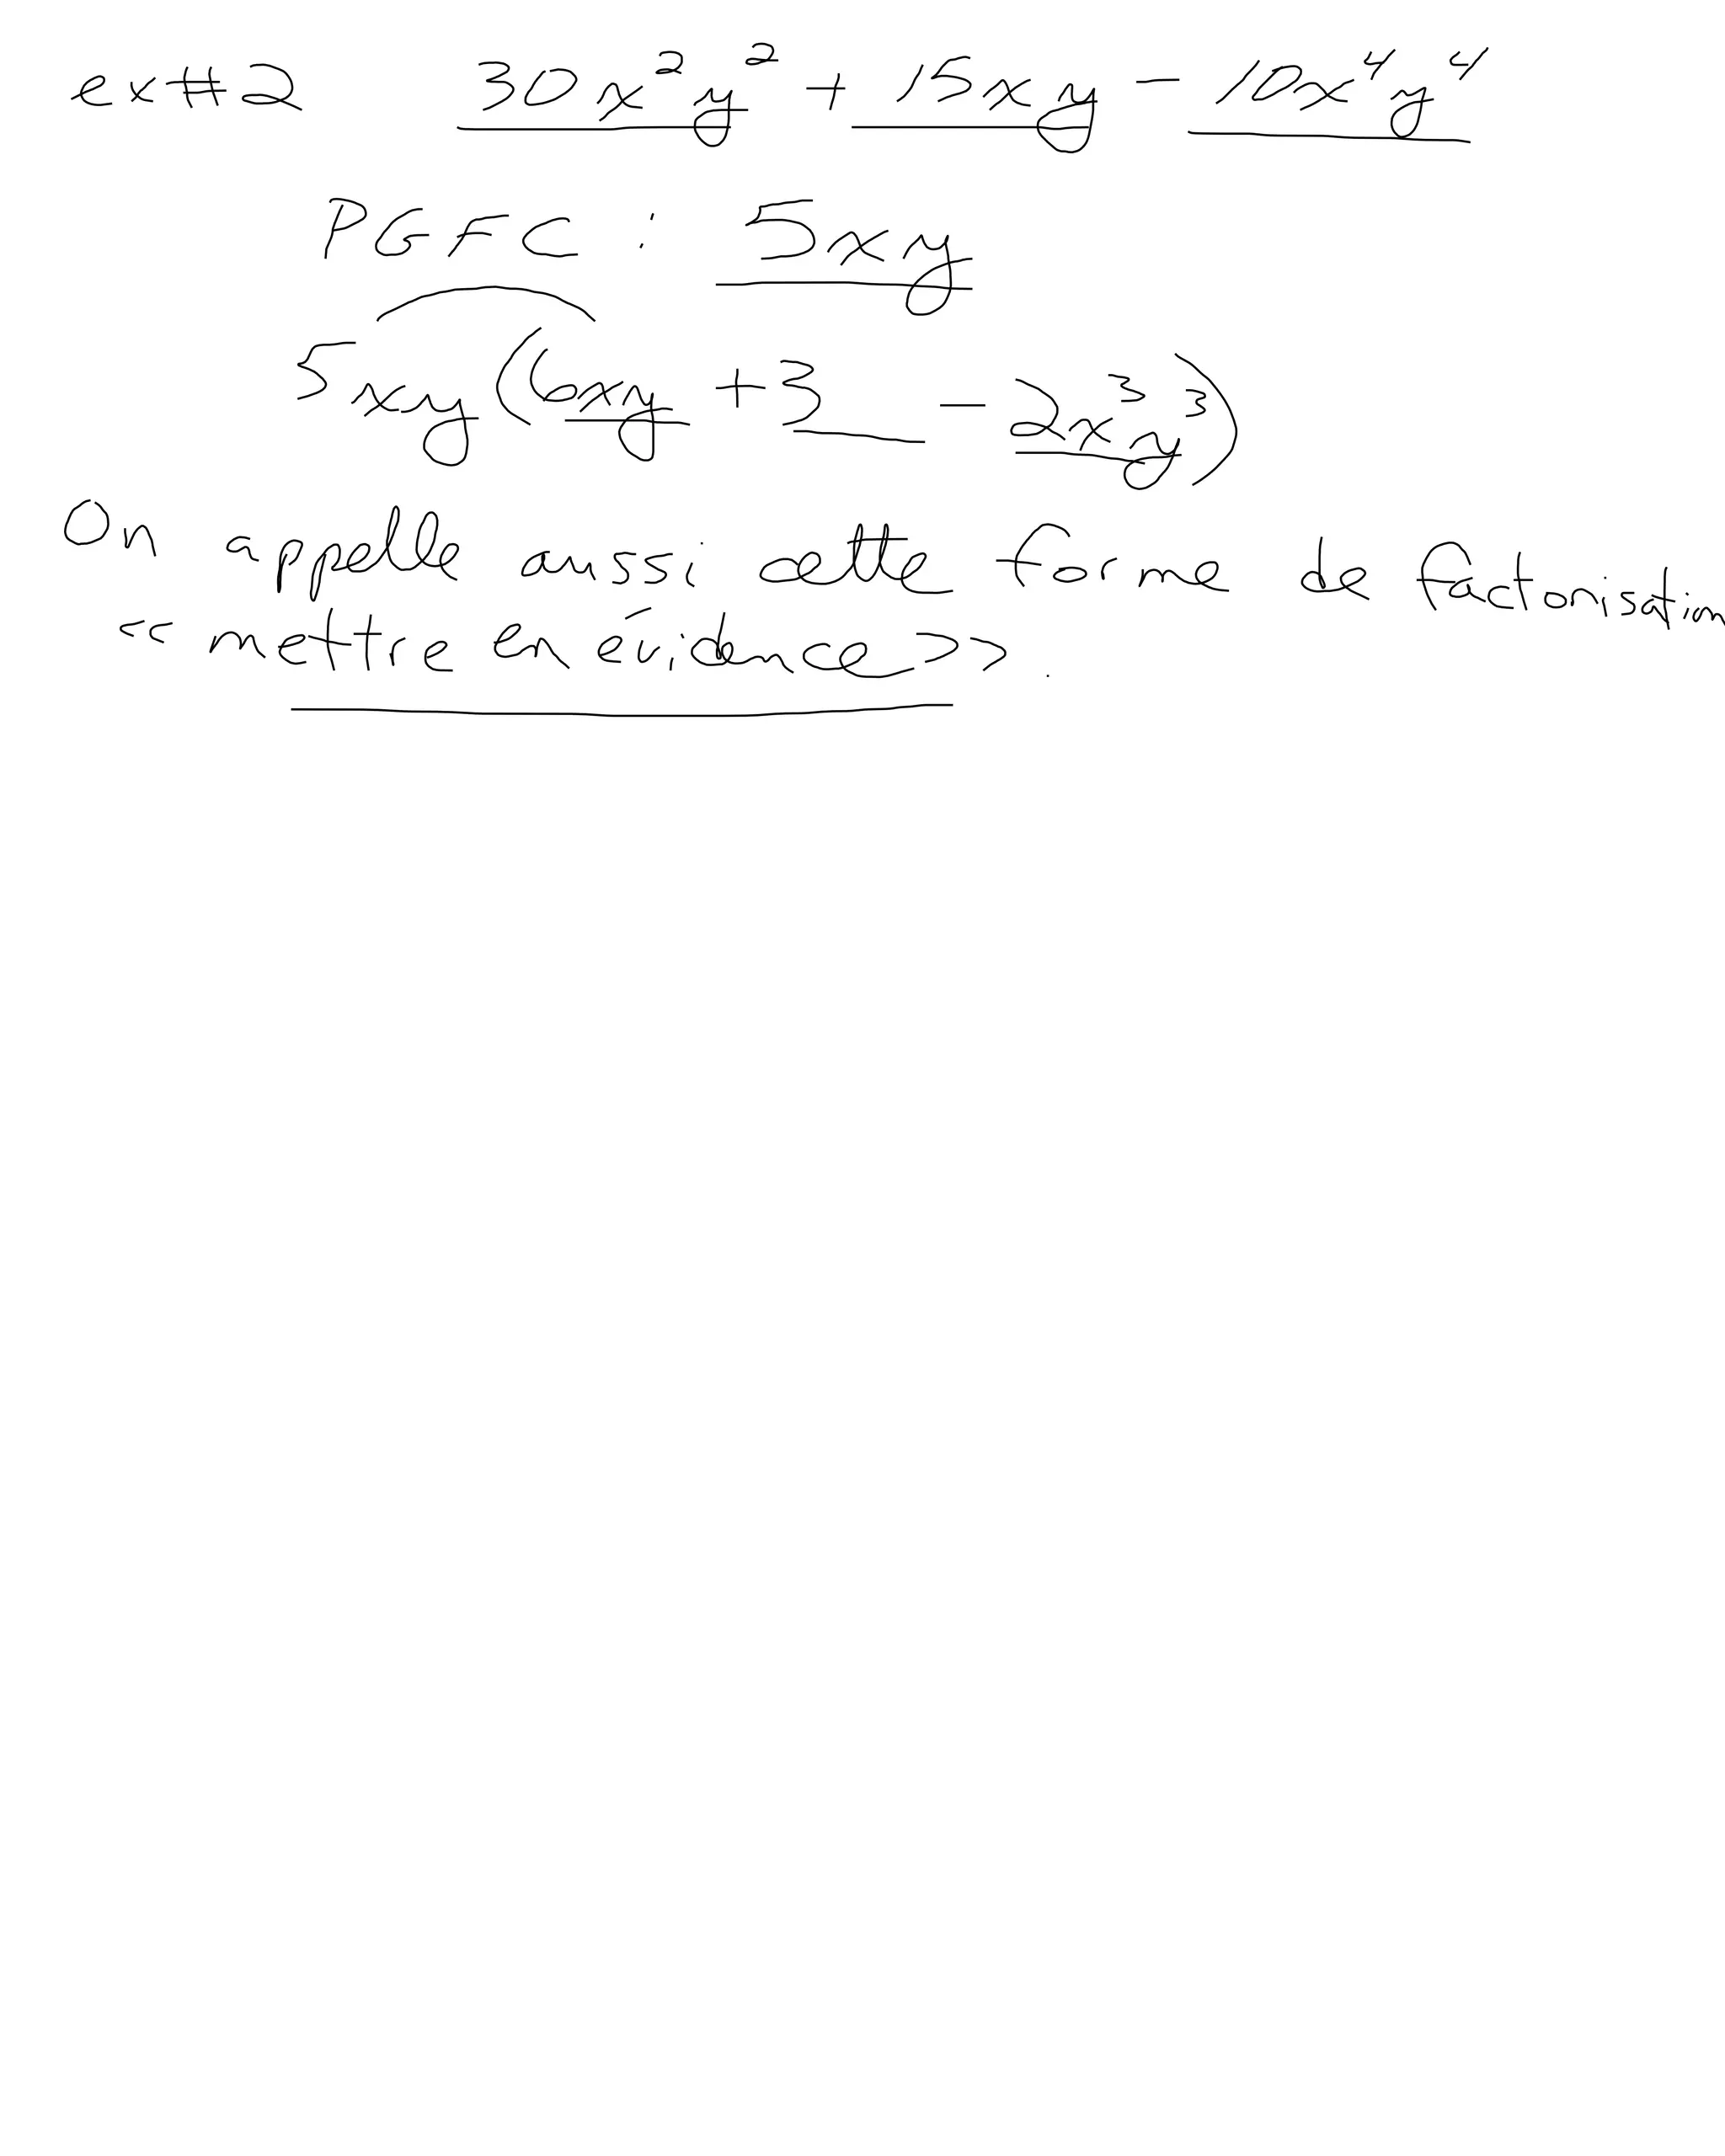 ex #2 30x²y² + 15xy - 10x⁴y⁴
PGFC : 5xy
5xy(6xy + 3 - 2x³y³)
On appelle aussi cette forme de factorisation
<< mettre en évidence >>.